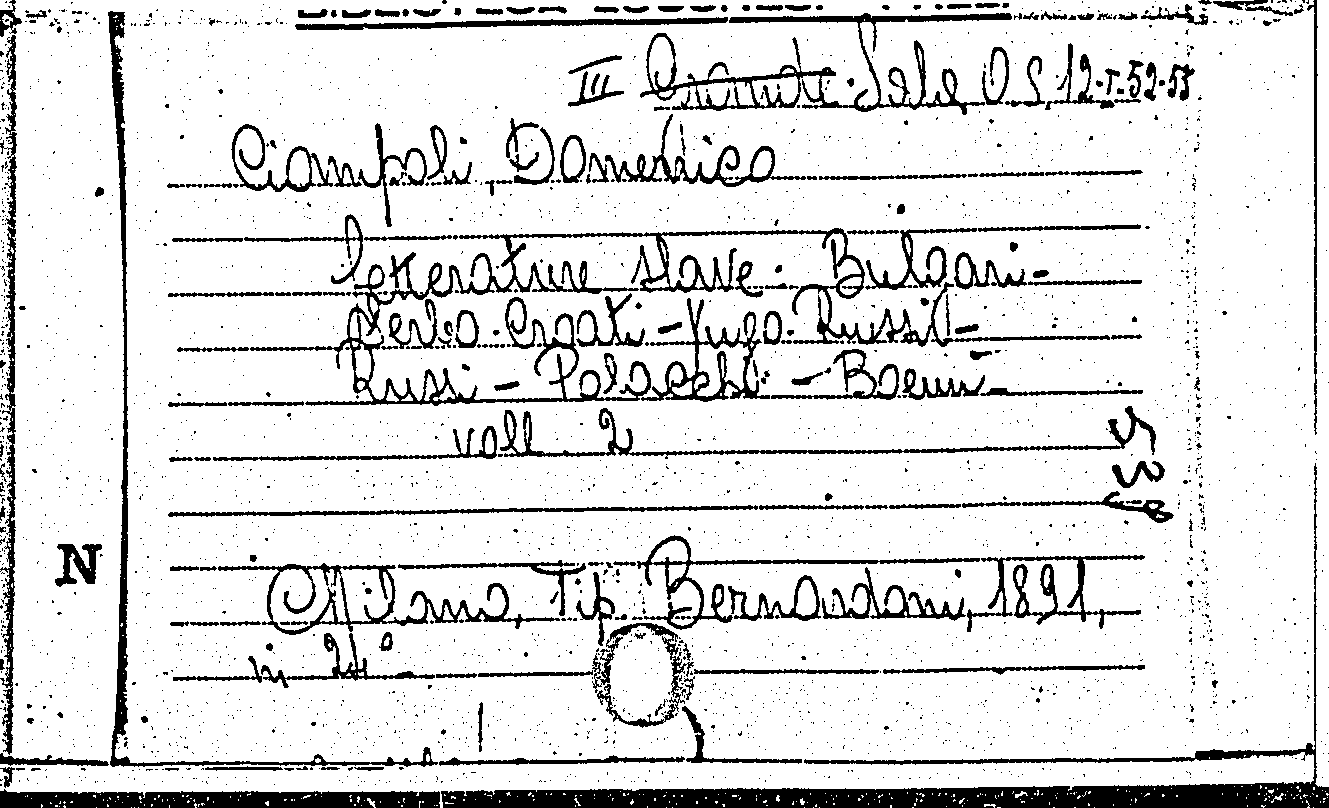 III Grande Sala O S, 12-I-52-55
Ciampoli, Domenico
Letterature slave: Bulgari-
Serbo-Croati-Yugo-Russi-
Russi - Polacchi - Boemi-
voll. 2
N
Milano, Tip. Bernardoni, 1891,
in 24°